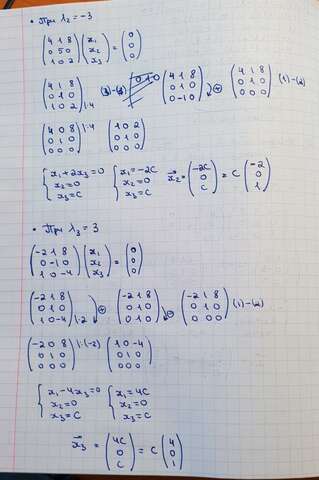 • При λ₂ = -3
(4 1 8; 0 5 0; 1 0 2) (x₁; x₂; x₃) = (0; 0; 0)
(4 1 8; 0 1 0; 1 0 2) |·4 (4 1 8; 0 1 0; 0 -1 0) ⊕ (4 1 8; 0 1 0; 0 0 0) (1)-(2)
(4 0 8; 0 1 0; 0 0 0) |:4 (1 0 2; 0 1 0; 0 0 0)
{x₁+2x₃=0; x₂=0; x₃=C {x₁=-2C; x₂=0; x₃=C x⃗₂=(-2C; 0; C) = C (-2; 0; 1)
• При λ₃ = 3
(-2 1 8; 0 -1 0; 1 0 -4) (x₁; x₂; x₃) = (0; 0; 0)
(-2 1 8; 0 1 0; 1 0 -4) |·2 ⊕ (-2 1 8; 0 1 0; 0 1 0) ⊖ (-2 1 8; 0 1 0; 0 0 0) (1)-(2)
(-2 0 8; 0 1 0; 0 0 0) |:(-2) (1 0 -4; 0 1 0; 0 0 0)
{x₁-4x₃=0; x₂=0; x₃=C {x₁=4C; x₂=0; x₃=C
x⃗₃ = (4C; 0; C) = C (4; 0; 1)